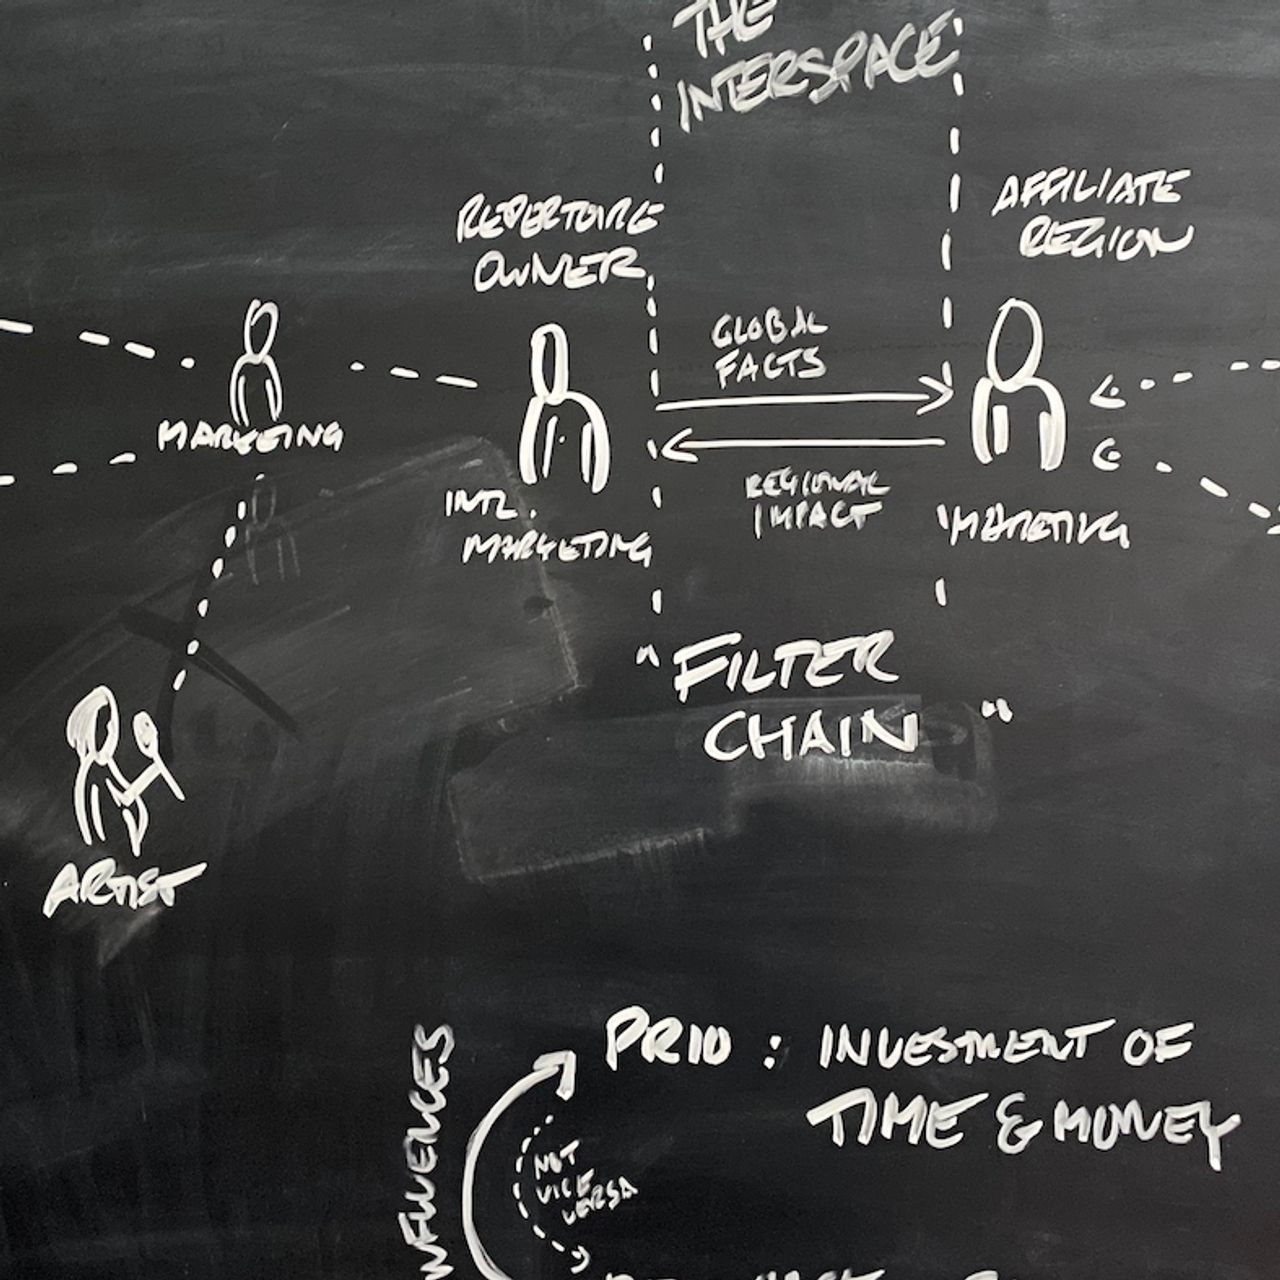 THE
INTERSPACE
REPERTOIRE
OWNER
AFFILIATE
REGION
GLOBAL
FACTS
MARKETING
REGIONAL
IMPACT
INTL.
MARKETING
MARKETING
"FILTER
CHAIN"
ARTIST
PRIO : INVESTMENT OF
TIME & MONEY
NFLUENCES
NOT
VICE
VERSA